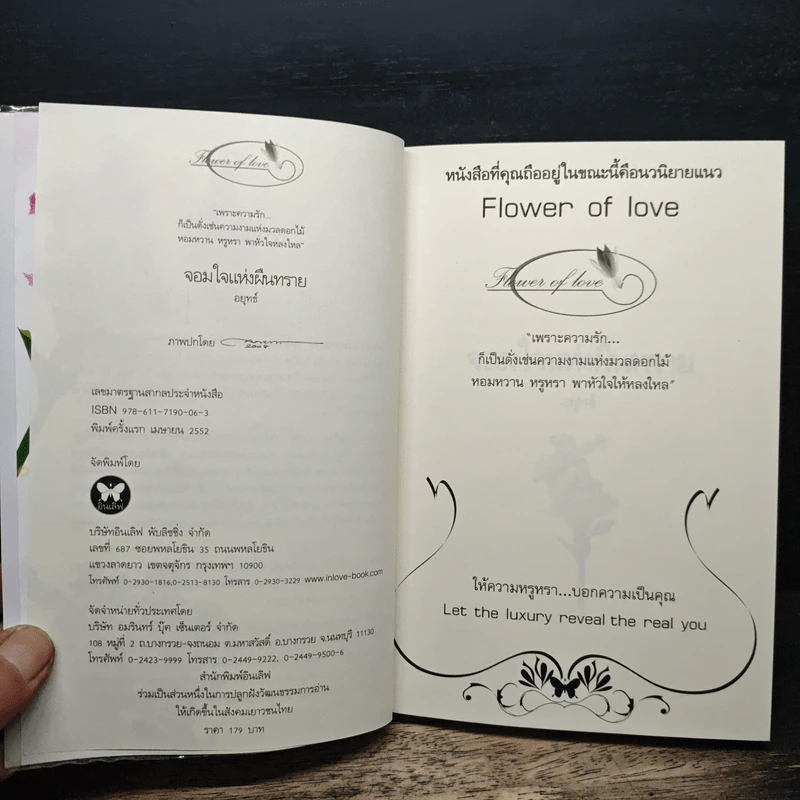 Flower of love
"เพราะความรัก...
ก็เป็นดั่งเช่นความงามแห่งมวลดอกไม้
หอมหวาน หรูหรา พาหัวใจหลงใหล"
จอมใจแห่งผืนทราย
อยุทธ์
ภาพปกโดย
เลขมาตรฐานสากลประจำหนังสือ
ISBN 978-611-7190-06-3
พิมพ์ครั้งแรก เมษายน 2552
จัดพิมพ์โดย
อินเลิฟ
บริษัทอินเลิฟ พับลิชชิ่ง จำกัด
เลขที่ 687 ซอยพหลโยธิน 35 ถนนพหลโยธิน
แขวงลาดยาว เขตจตุจักร กรุงเทพฯ 10900
โทรศัพท์ 0-2930-1816,0-2513-8130 โทรสาร 0-2930-3229 www.inlove-book.com
จัดจำหน่ายทั่วประเทศโดย
บริษัท อมรินทร์ บุ๊ค เซ็นเตอร์ จำกัด
108 หมู่ที่ 2 ถ.บางกรวย-จงถนอม ต.มหาสวัสดิ์ อ.บางกรวย จ.นนทบุรี 11130
โทรศัพท์ 0-2423-9999 โทรสาร 0-2449-9222, 0-2449-9500-6
สำนักพิมพ์อินเลิฟ
ร่วมเป็นส่วนหนึ่งในการปลูกฝังวัฒนธรรมการอ่าน
ให้เกิดขึ้นในสังคมเยาวชนไทย
ราคา 179 บาท
หนังสือที่คุณถืออยู่ในขณะนี้คือนวนิยายแนว
Flower of love
Flower of love
"เพราะความรัก...
ก็เป็นดั่งเช่นความงามแห่งมวลดอกไม้
หอมหวาน หรูหรา พาหัวใจให้หลงใหล"
ให้ความหรูหรา...บอกความเป็นคุณ
Let the luxury reveal the real you